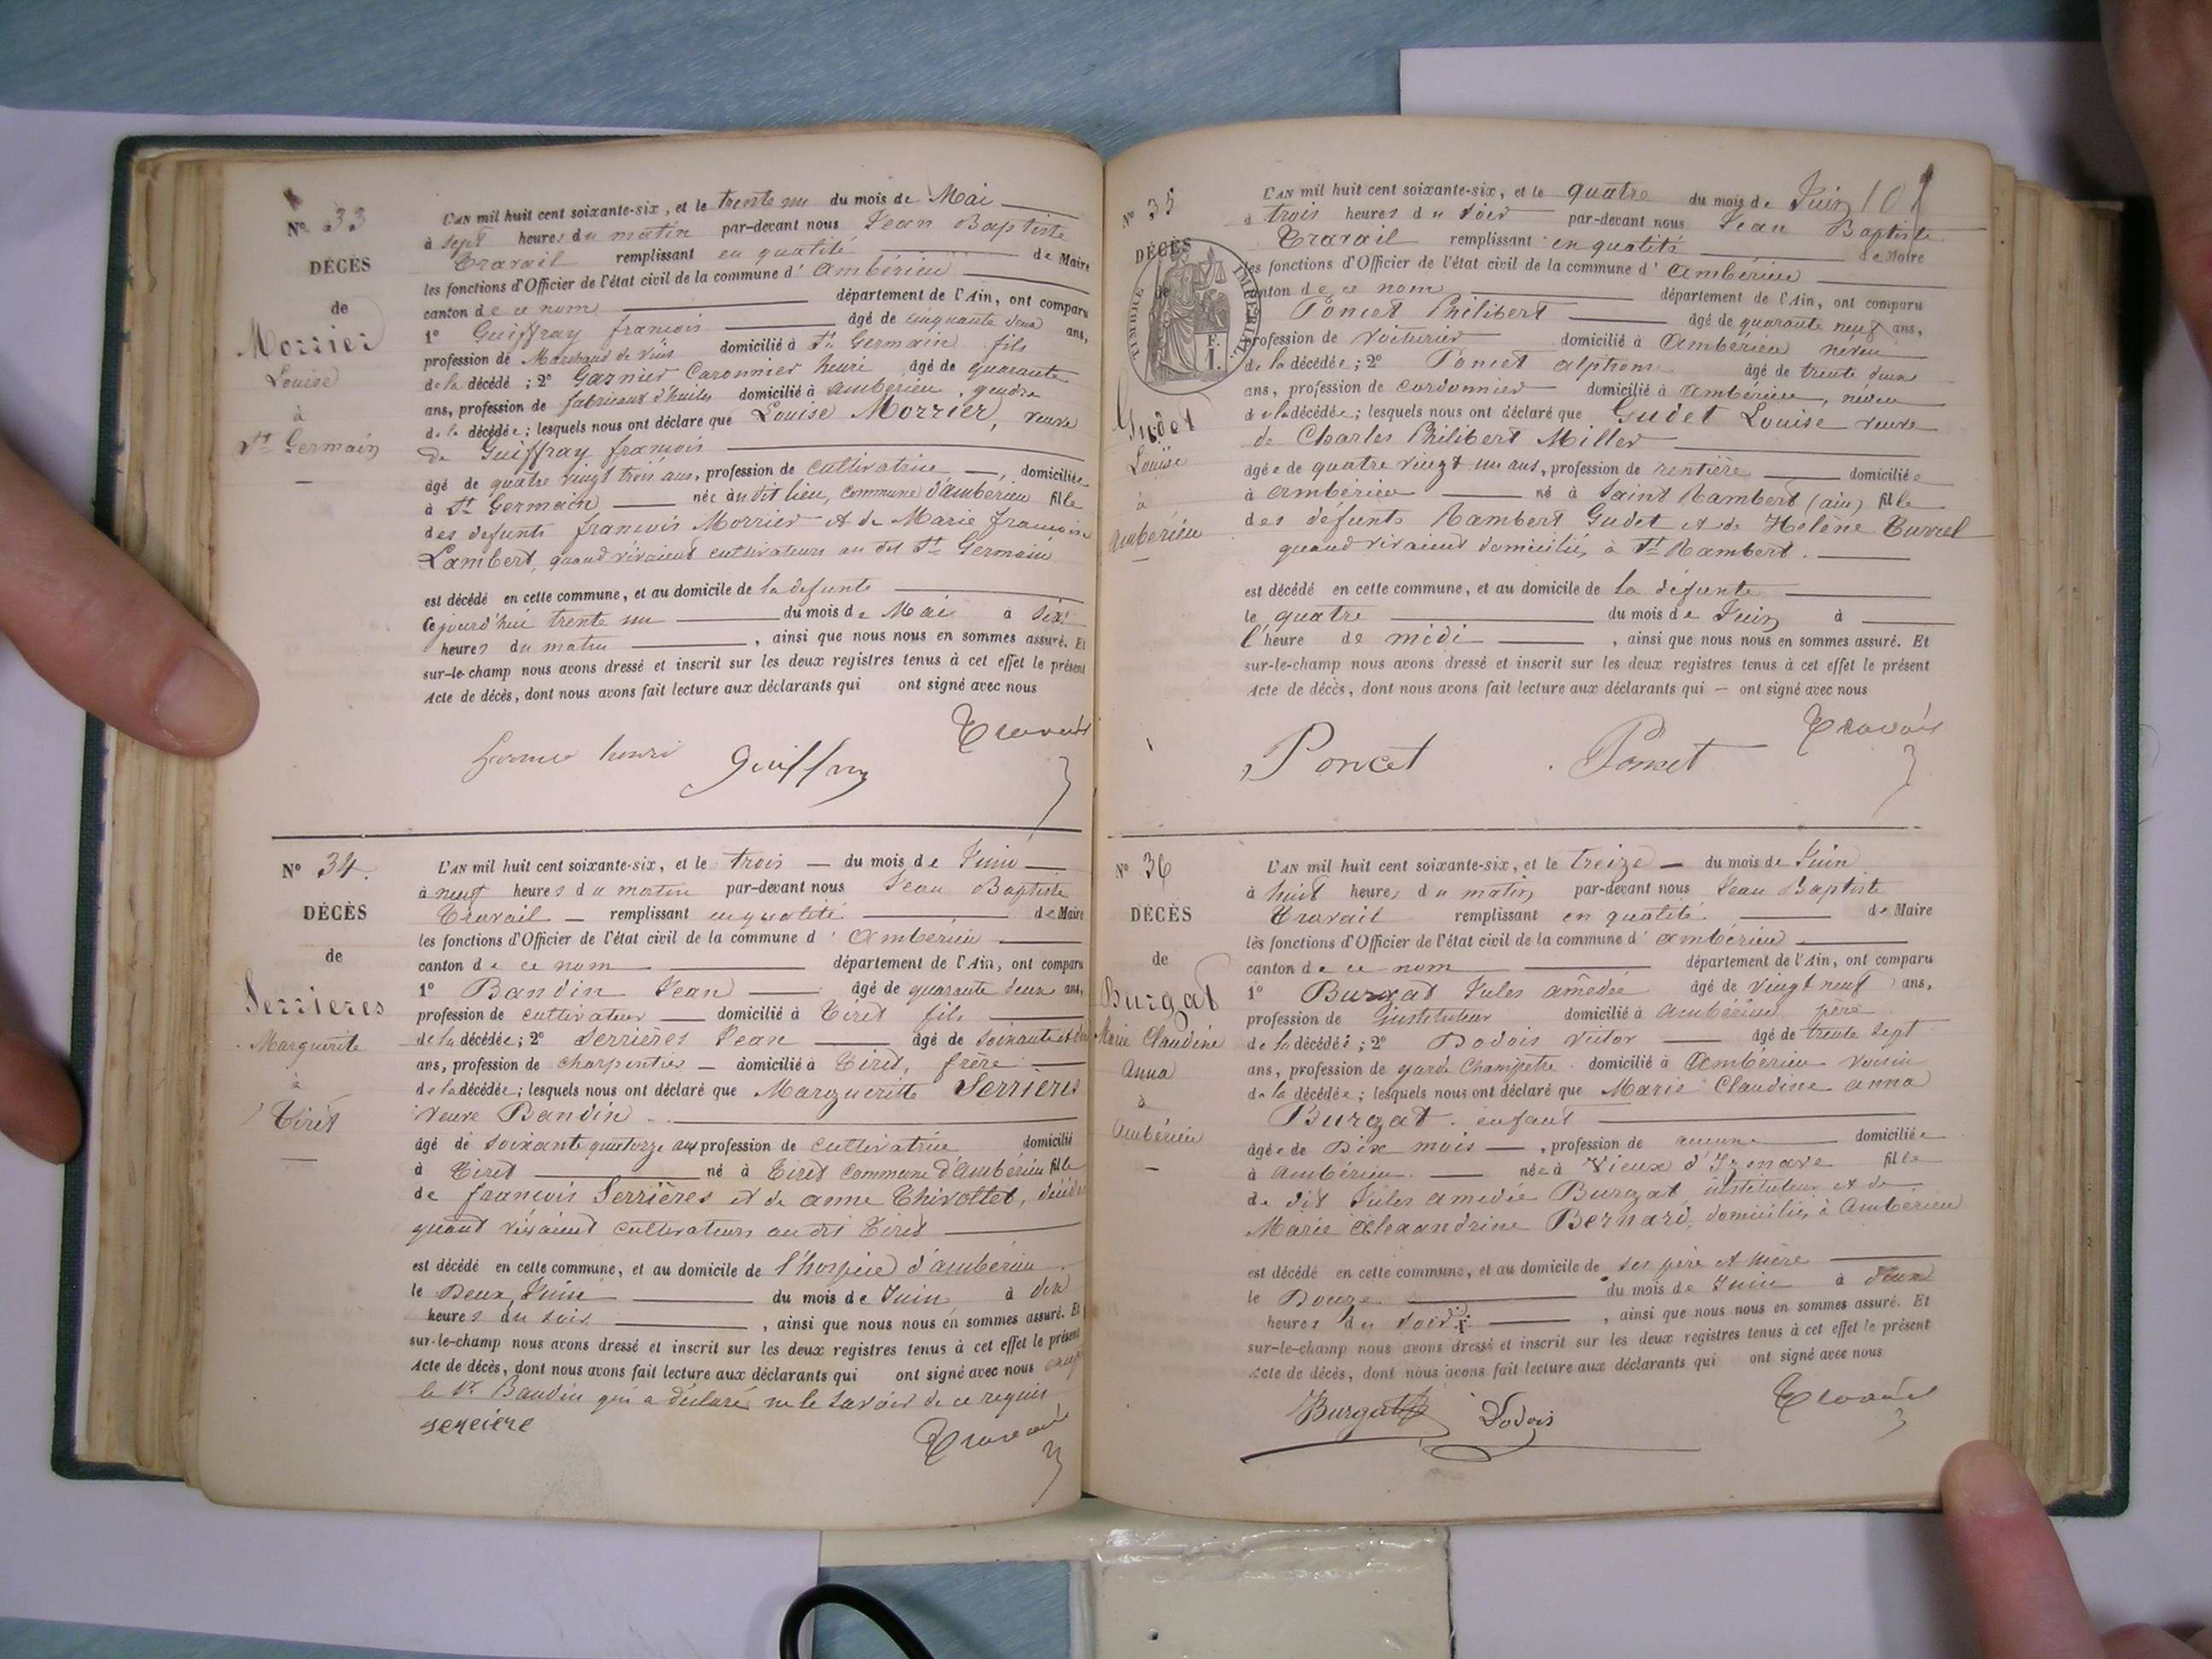 Nº 33
DÉCÈS
de
Morrier
Louise
à
St Germain
L'AN mil huit cent soixante-six, et le trente un du mois de Mai
à sept heures du matin par-devant nous Jean Baptiste
Travail remplissant en qualité de Maire
les fonctions d'Officier de l'état civil de la commune d'Ambérieu
canton de ce nom département de l'Ain, ont comparu
1º Guiffray françois âgé de cinquante deux ans,
profession de Marchand de vins domicilié à St Germain fils
de la décédé ; 2º Garnier Caronnier henri âgé de quarante
ans, profession de fabricant d'huiles domicilié à ambérieu, gendre
de la décédée ; lesquels nous ont déclaré que Louise Morrier, veuve
de Guiffray françois
âgé de quatre vingt trois ans, profession de cultivatrice, domiciliée
à St Germain née au dit lieu, commune d'ambérieu fille
des defunts françois Morrier et de Marie françoise
Lambert, quand vivaient cultivateurs au dit St Germain
est décédé en cette commune, et au domicile de la defunte
Cejourd'hui trente un du mois de Mai à six
heures du matin, ainsi que nous nous en sommes assuré. Et
sur-le-champ nous avons dressé et inscrit sur les deux registres tenus à cet effet le présent
Acte de décès, dont nous avons fait lecture aux déclarants qui ont signé avec nous
henri Guiffray Travail
Nº 34.
DÉCÈS
de
Serrieres
Marguerite
à
Tiret
L'AN mil huit cent soixante-six, et le trois — du mois de Juin
à neuf heures du matin par-devant nous Jean Baptiste
Travail — remplissant en qualité de Maire
les fonctions d'Officier de l'état civil de la commune d'Ambérieu
canton de ce nom département de l'Ain, ont comparu
1º Bandin Jean âgé de quarante deux ans,
profession de cultivateur domicilié à Tiret fils
de la décédée ; 2º Serrières Jean âgé de soixante et dix
ans, profession de charpentier — domicilié à Tiret, frère
de la décédée ; lesquels nous ont déclaré que Margueritte Serrieres
veuve Bandin
âgé de soixante quatorze ans profession de cultivatrice domicilié
à Tiret né à Tiret commune d'Ambérieu fille
de françois Serrières et de anne Thivollet, décédés
quand vivaient cultivateurs au dit Tiret
est décédé en cette commune, et au domicile de l'hospice d'ambérieu
le Deux Juin du mois de Juin à dix
heures du soir, ainsi que nous nous en sommes assuré. Et
sur-le-champ nous avons dressé et inscrit sur les deux registres tenus à cet effet le présent
Acte de décès, dont nous avons fait lecture aux déclarants qui ont signé avec nous
le Sr Baudin qui a déclaré ne le savoir de ce requis
serriere Travail
101
Nº 35
DÉCÈS
de
TIMBRE IMPÉRIAL
F.
I.
Gudet
Louise
à
Ambérieu
L'AN mil huit cent soixante-six, et le quatre du mois de Juin
à trois heures du soir par-devant nous Jean Baptiste
Travail remplissant en qualité de Maire
les fonctions d'Officier de l'état civil de la commune d'Ambérieu
canton de ce nom département de l'Ain, ont comparu
Poncet Philibert âgé de quarante neuf ans,
profession de voiturier domicilié à Ambérieu néveu
de la décédée ; 2º Poncet alphonse âgé de trente deux
ans, profession de cordonnier domicilié à Ambérieu, néveu
de la décédée ; lesquels nous ont déclaré que Gudet Louise veuve
de Charles Philibert Millet
âgée de quatre vingt un ans, profession de rentière domiciliée
à ambérieu né à Saint Rambert (ain) fille
des défunts Rambert Gudet et de Hélène Burrel
quand vivaient domiciliés à St Rambert.
est décédé en cette commune, et au domicile de la défunte
le quatre du mois de Juin à
l'heure de midi, ainsi que nous nous en sommes assuré. Et
sur-le-champ nous avons dressé et inscrit sur les deux registres tenus à cet effet le présent
Acte de décès, dont nous avons fait lecture aux déclarants qui — ont signé avec nous
Poncet Poncet Travail
Nº 36
DÉCÈS
de
Burgat
Marie Claudine
Anna
à
Ambérieu
L'AN mil huit cent soixante-six, et le treize — du mois de Juin
à huit heures du matin par-devant nous Jean Baptiste
Travail remplissant en qualité de Maire
lès fonctions d'Officier de l'état civil de la commune d'ambérieu
canton de ce nom département de l'Ain, ont comparu
1º Burgat Jules amédée âgé de vingt neuf ans,
profession de instituteur domicilié à ambérieu père
de la décédée ; 2º Dodois Victor âgé de trente sept
ans, profession de garde champêtre domicilié à Ambérieu voisin
de la décédée ; lesquels nous ont déclaré que Marie Claudine anna
Burgat enfant
âgée de Dix mois, profession de aucune domiciliée
à ambérieu née à Vieux d'Izenave fille
de dit Jules amédée Burgat, instituteur et de
Marie Alexandrine Bernard, domiciliés à Ambérieu
est décédé en cette commune, et au domicile de ses père et mère
le Douze du mois de Juin à deux
heures du soir, ainsi que nous nous en sommes assuré. Et
sur-le-champ nous avons dressé et inscrit sur les deux registres tenus à cet effet le présent
Acte de décès, dont nous avons fait lecture aux déclarants qui ont signé avec nous
Burgat Dodois Travail